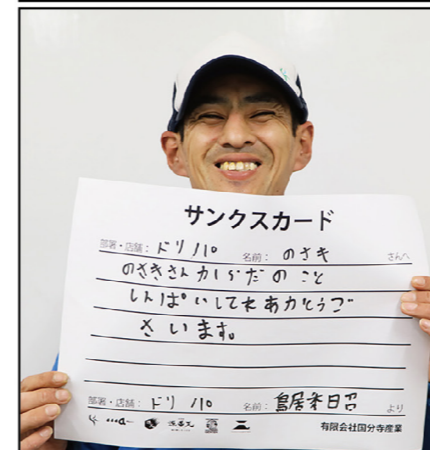 サンクスカード
部署・店舗: ドリノパ 名前: のさき さんへ
のさきさん からだの こと
しんぱいしてれ あかとうご
ざいます。
部署・店舗: ドリノパ 名前: 鳥居 より
有限会社国分寺産業